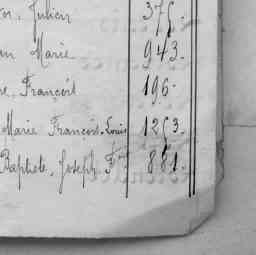 Julien 375.
Marie 943.
François 196.
Marie François-Louis 1253.
Baptiste, Joseph Fois 881.